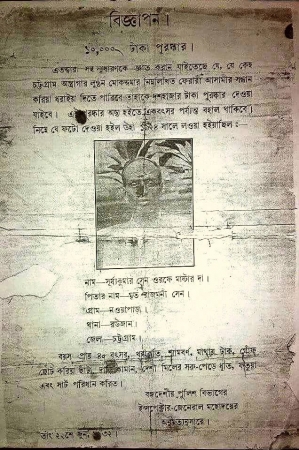 বিজ্ঞাপন।
১০,০০০৲ টাকা পুরস্কার।
এতদ্দ্বারা সর্ব্ব সাধারণকে জ্ঞাত করান যাইতেছে যে, যে কেহ
চট্টগ্রাম অস্ত্রাগার লুণ্ঠন মোকদ্দমার নিম্নলিখিত ফেরারী আসামীর সন্ধান
করিয়া ধরাইয়া দিতে পারিবে তাহাকে দশহাজার টাকা পুরস্কার দেওয়া
যাইবে। এই পুরস্কার অদ্য হইতে একবৎসর পর্য্যন্ত বহাল থাকিবে।
নিম্নে যে ফটো দেওয়া হইল উহা সালে লওয়া হইয়াছিল:
নাম—সূর্য্যকুমার সেন ওরফে মাষ্টার দা।
পিতার নাম—মৃত রাজমনী সেন।
গ্রাম—নওয়াপাড়া
থানা—রাউজান।
জেলা—চট্টগ্রাম।
বয়স প্রায় ৪০ বৎসর, শ্যামবর্ণ, মাথায় টাক,
ছোট করিয়া ছাঁটা, দাড়ি কামান, দেশী মিলের সরু-পেড়ে ধুতি,
এবং সার্ট পরিধান করিত।
বঙ্গদেশীয় পুলিশ বিভাগের
ইন্সপেক্টার-জেনেরাল মহোদয়ের
অনুমত্যানুসারে।
তাং ২২শে জুন, ৩২।